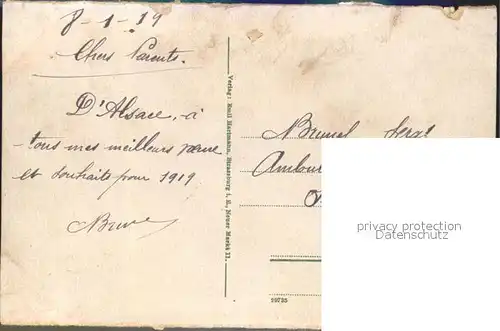 8-1-19
Chers Parents.
D'Alsace, à
tous mes meilleurs
et souhaits pour 1919
Verlag: Emil Hartmann, Strassburg i. E., Neuer Markt 11.
Brunel
29735
privacy protection
Datenschutz